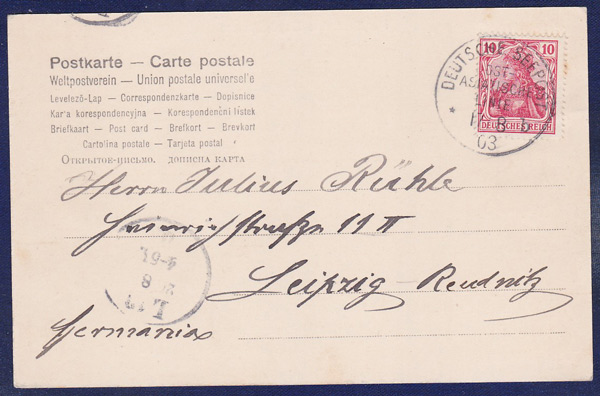 Postkarte — Carte postale
Weltpostverein — Union postale universelle
Levelező-Lap — Correspondenzkarte — Dopisnice
Karta korespondencyjna — Korespondenční lístek
Briefkaart — Post card — Brefkort — Brevkort
Cartolina postale — Tarjeta postal
Открытое-письмо. дописна карта
DEUTSCHE SEEPOST
OST-
ASIATISCHE
LINIE
03
10 10
DEUTSCHES REICH
Herrn Julius Rühle
Heinrichstraße 11 II
Leipzig Reudnitz
Germania